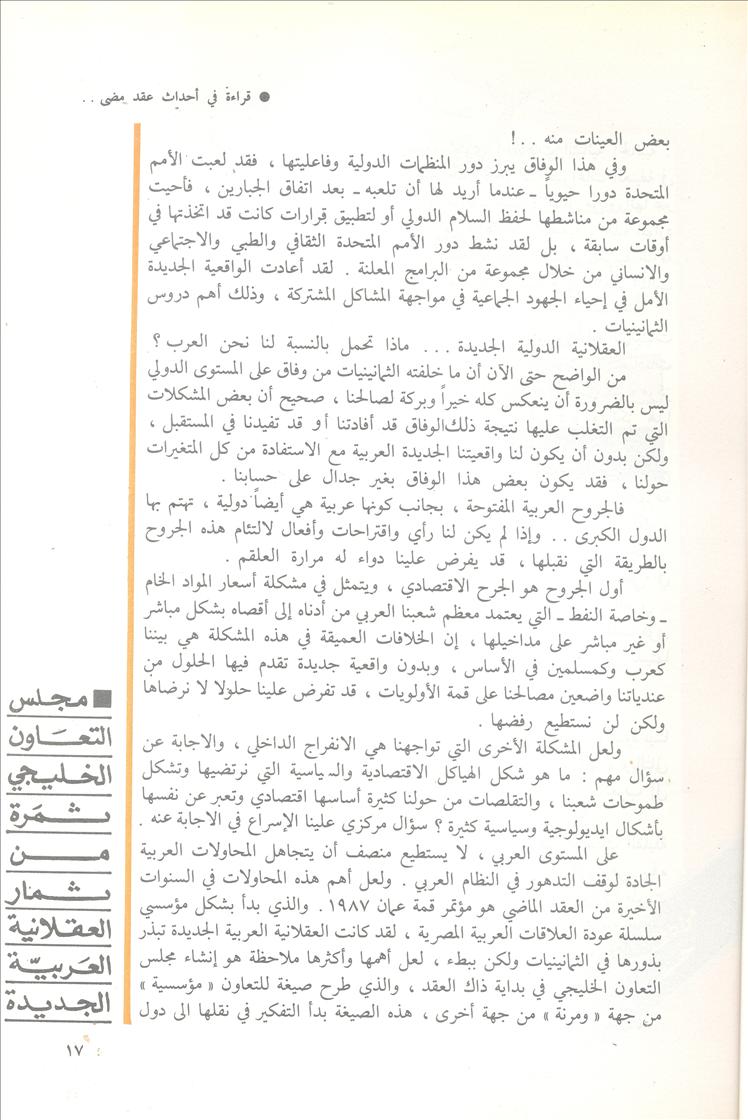 ● قراءة في أحداث عقد مضى ..
بعض العينات منه ..!
وفي هذا الوفاق يبرز دور المنظمات الدولية وفاعليتها ، فقد لعبت الأمم
المتحدة دورا حيوياً ـ عندما أريد لها أن تلعبه ـ بعد اتفاق الجبارين ، فأحيت
مجموعة من مناشطها لحفظ السلام الدولي أو لتطبيق قرارات كانت قد اتخذتها في
أوقات سابقة ، بل لقد نشط دور الأمم المتحدة الثقافي والطبي والاجتماعي
والانساني من خلال مجموعة من البرامج المعلنة . لقد أعادت الواقعية الجديدة
الأمل في إحياء الجهود الجماعية في مواجهة المشاكل المشتركة ، وذلك أهم دروس
الثمانينيات .
العقلانية الدولية الجديدة ... ماذا تحمل بالنسبة لنا نحن العرب ؟
من الواضح حتى الآن أن ما خلفته الثمانينيات من وفاق على المستوى الدولي
ليس بالضرورة أن ينعكس كله خيراً وبركة لصالحنا ، صحيح أن بعض المشكلات
التي تم التغلب عليها نتيجة ذلك الوفاق قد أفادتنا أو قد تفيدنا في المستقبل ،
ولكن بدون أن يكون لنا واقعيتنا الجديدة العربية مع الاستفادة من كل المتغيرات
حولنا ، فقد يكون بعض هذا الوفاق بغير جدال على حسابنا .
فالجروح العربية المفتوحة ، بجانب كونها عربية هي أيضاً دولية ، تهتم بها
الدول الكبرى .. وإذا لم يكن لنا رأي واقتراحات وأفعال لالتئام هذه الجروح
بالطريقة التي نقبلها ، قد يفرض علينا دواء له مرارة العلقم .
أول الجروح هو الجرح الاقتصادي ، ويتمثل في مشكلة أسعار المواد الخام
ـ وخاصة النفط ـ التي يعتمد معظم شعبنا العربي من أدناه إلى أقصاه بشكل مباشر
أو غير مباشر على مداخيلها ، إن الخلافات العميقة في هذه المشكلة هي بيننا
كعرب وكمسلمين في الأساس ، وبدون واقعية جديدة تقدم فيها الحلول من
عندياتنا واضعين مصالحنا على قمة الأولويات ، قد تفرض علينا حلولا لا نرضاها
ولكن لن نستطيع رفضها .
ولعل المشكلة الأخرى التي تواجهنا هي الانفراج الداخلي ، والاجابة عن
سؤال مهم : ما هو شكل الهياكل الاقتصادية والسياسية التي نرتضيها وتشكل
طموحات شعبنا ، والتقلصات من حولنا كثيرة أساسها اقتصادي وتعبر عن نفسها
بأشكال ايديولوجية وسياسية كثيرة ؟ سؤال مركزي علينا الإسراع في الاجابة عنه .
على المستوى العربي ، لا يستطيع منصف أن يتجاهل المحاولات العربية
الجادة لوقف التدهور في النظام العربي . ولعل أهم هذه المحاولات في السنوات
الأخيرة من العقد الماضي هو مؤتمر قمة عمان ١٩٨٧. والذي بدأ بشكل مؤسسي
سلسلة عودة العلاقات العربية المصرية ، لقد كانت العقلانية العربية الجديدة تبذر
بذورها في الثمانينيات ولكن ببطء ، لعل أهمها وأكثرها ملاحظة هو إنشاء مجلس
التعاون الخليجي في بداية ذاك العقد ، والذي طرح صيغة للتعاون « مؤسسية »
من جهة « ومرنة » من جهة أخرى ، هذه الصيغة بدأ التفكير في نقلها الى دول
■ مجلس
التعاون
الخليجي
ثمرة
من
ثمار
العقلانية
العربية
الجديدة
١٧